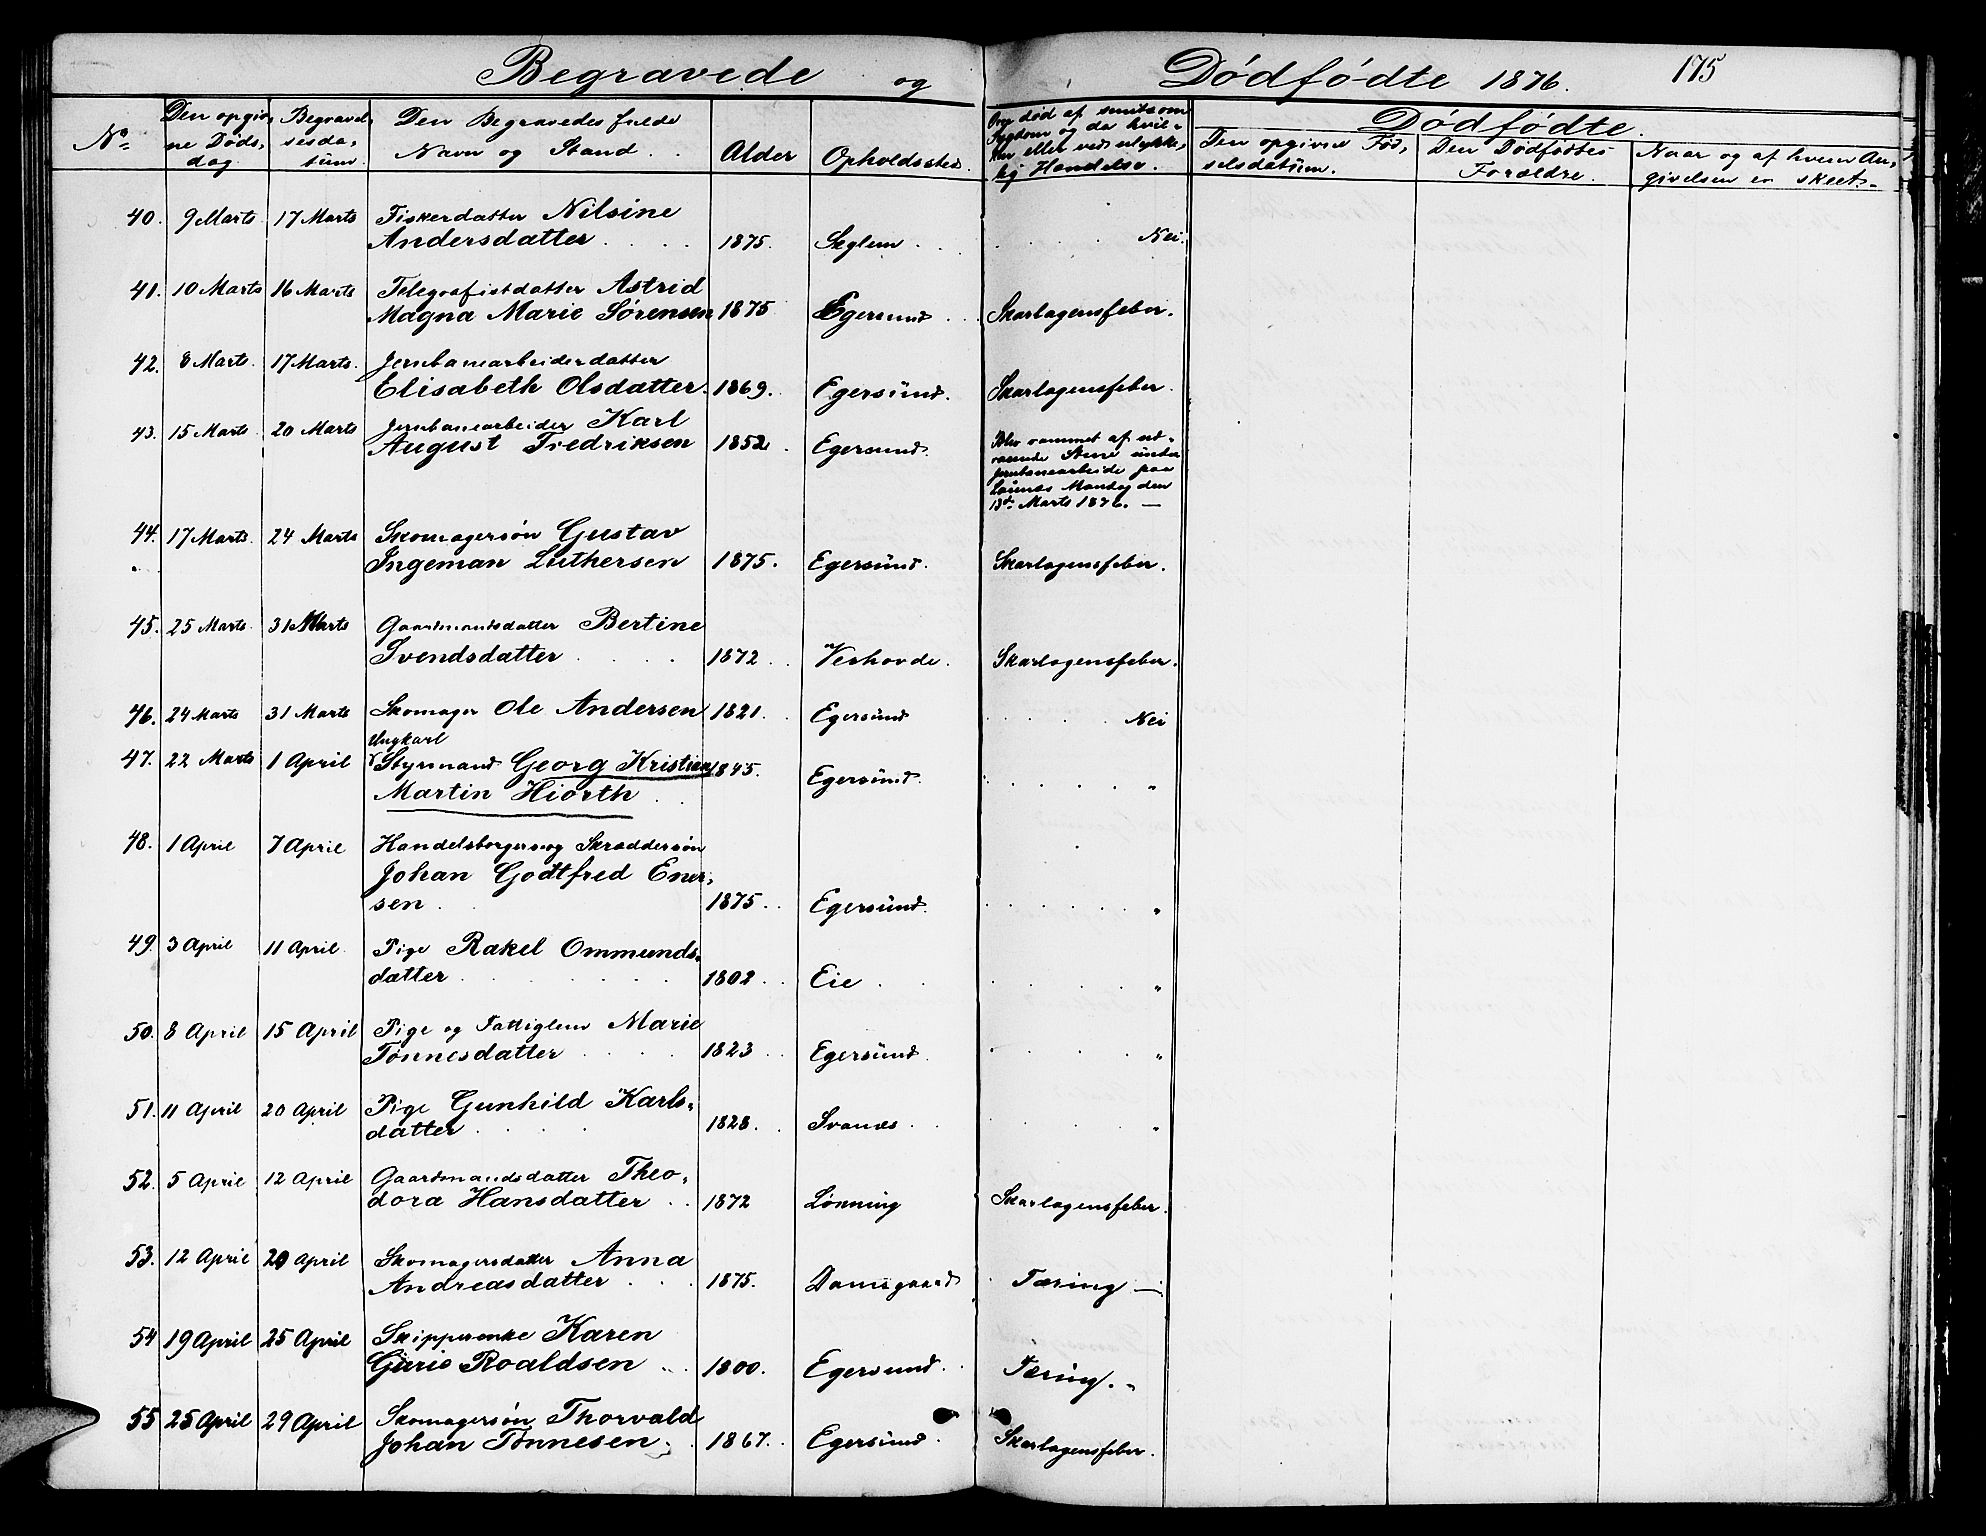 Begravede og Dødfødte 1876. 175
No
Den opgiv,
ne Døds,
dag
Begravel,
sesda,
tum
Den Begravedes fulde
Navn og Stand
Alder
Opholdssted.
Om død af smitsom
Sygdom og da hvil-
ken eller ved ulykke,
lig Hændelse.
Dødfødte.
Den opgivne Fød,
selsdatum.
Den Dødfødtes
Forældre.
Naar og af hvem An,
givelsen er skeet.
40. 9 Marts 17 Marts Fiskerdatter Nilsine
Andersdatter 1875. Seglem Nei.
41. 10 Marts 16 Marts Telegrafistdatter Astrid
Magna Marie Sørensen 1875 Egersund Skarlagensfeber.
42. 8 Marts. 17 Marts. Jernbanearbeiderdatter
Elisabeth Olsdatter. 1869. Egersund. Skarlagensfeber.
43. 15 Marts 20 Marts Jernbanearbeider Karl
August Fredriksen 1852. Egersund.
Blev rammet af ud-
Stene under
Jernbanearbeide paa
Mandag den
13de Marts 1876. —
44. 17 Marts. 24 Marts Skomagersøn Gustav
Ingeman Luthersen 1875. Egersund. Skarlagensfeber.
45. 25 Marts 31 Marts Gaardmandsdatter Bertine
Svendsdatter 1872. Veshovde. Skarlagensfeber.
46. 24 Marts 31 Marts Skomager Ole Andersen 1821. Egersund Nei
Ungkarl
47. 22 Marts 1 April Styrmand Georg Kristian 1845. Egersund. "
Martin Hiorth
48. 1 April 7 April Handelsborger og Skræddersøn
Johan Godtfred Ener,
sen 1875. Egersund. "
49. 3 April 11 April Pige Rakel Ommunds,
datter 1802. Eie "
50. 8 April 15 April Pige og Fattiglem Marie
Tønnesdatter 1823 Egersund. "
51. 11 April 20 April Pige Gunhild Karls,
datter 1828. Svanæs "
52. 5 April 12 April Gaardmandsdatter Theo,
dora Hansdatter 1872 Lønning Skarlagensfeber.
53. 12 April 20 April Skomagersdatter Anna
Andreasdatter 1875. Damsgaard Tæring —
54 19 April 25 April Skipperenke Karen
Gurie Roaldsen 1800. Egersund. Tæring. "
55 25 April 29 April Skomagersøn Thorvald
Johan Tønnesen. 1867. Egersund. Skarlagensfeber.